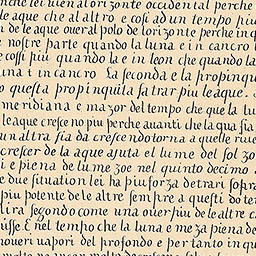 nche lei vien al orizonte occidental perche
de aque che al altro e cosi ad un tempo piu
n de le aque overal polo de lorizonte perche in q
e nostre parte quando la luna e in cancro l
e cossi piu quando la e in leon che quando la
una i in cancro La seconda e la propinqu
o questa propinquita fa trar piu le aque.
meridiana e mazor del tempo che que la lu
le aque cresce no piu perche avanti che la qua sia
un altra sia da crescendo torna a quelle rive
crescer de la aque ajuta el lume del sol zo
i e piena de lume zoe nel quinto decimo
e due situation lei ha piu forza de trar i sopra
piu potente de le altre sempre a questi do ten
lira segondo come una over piu de le altre c
isse E nel tempo che la luna e meza piena de
noveri vapori del profondo e per tanto in qu